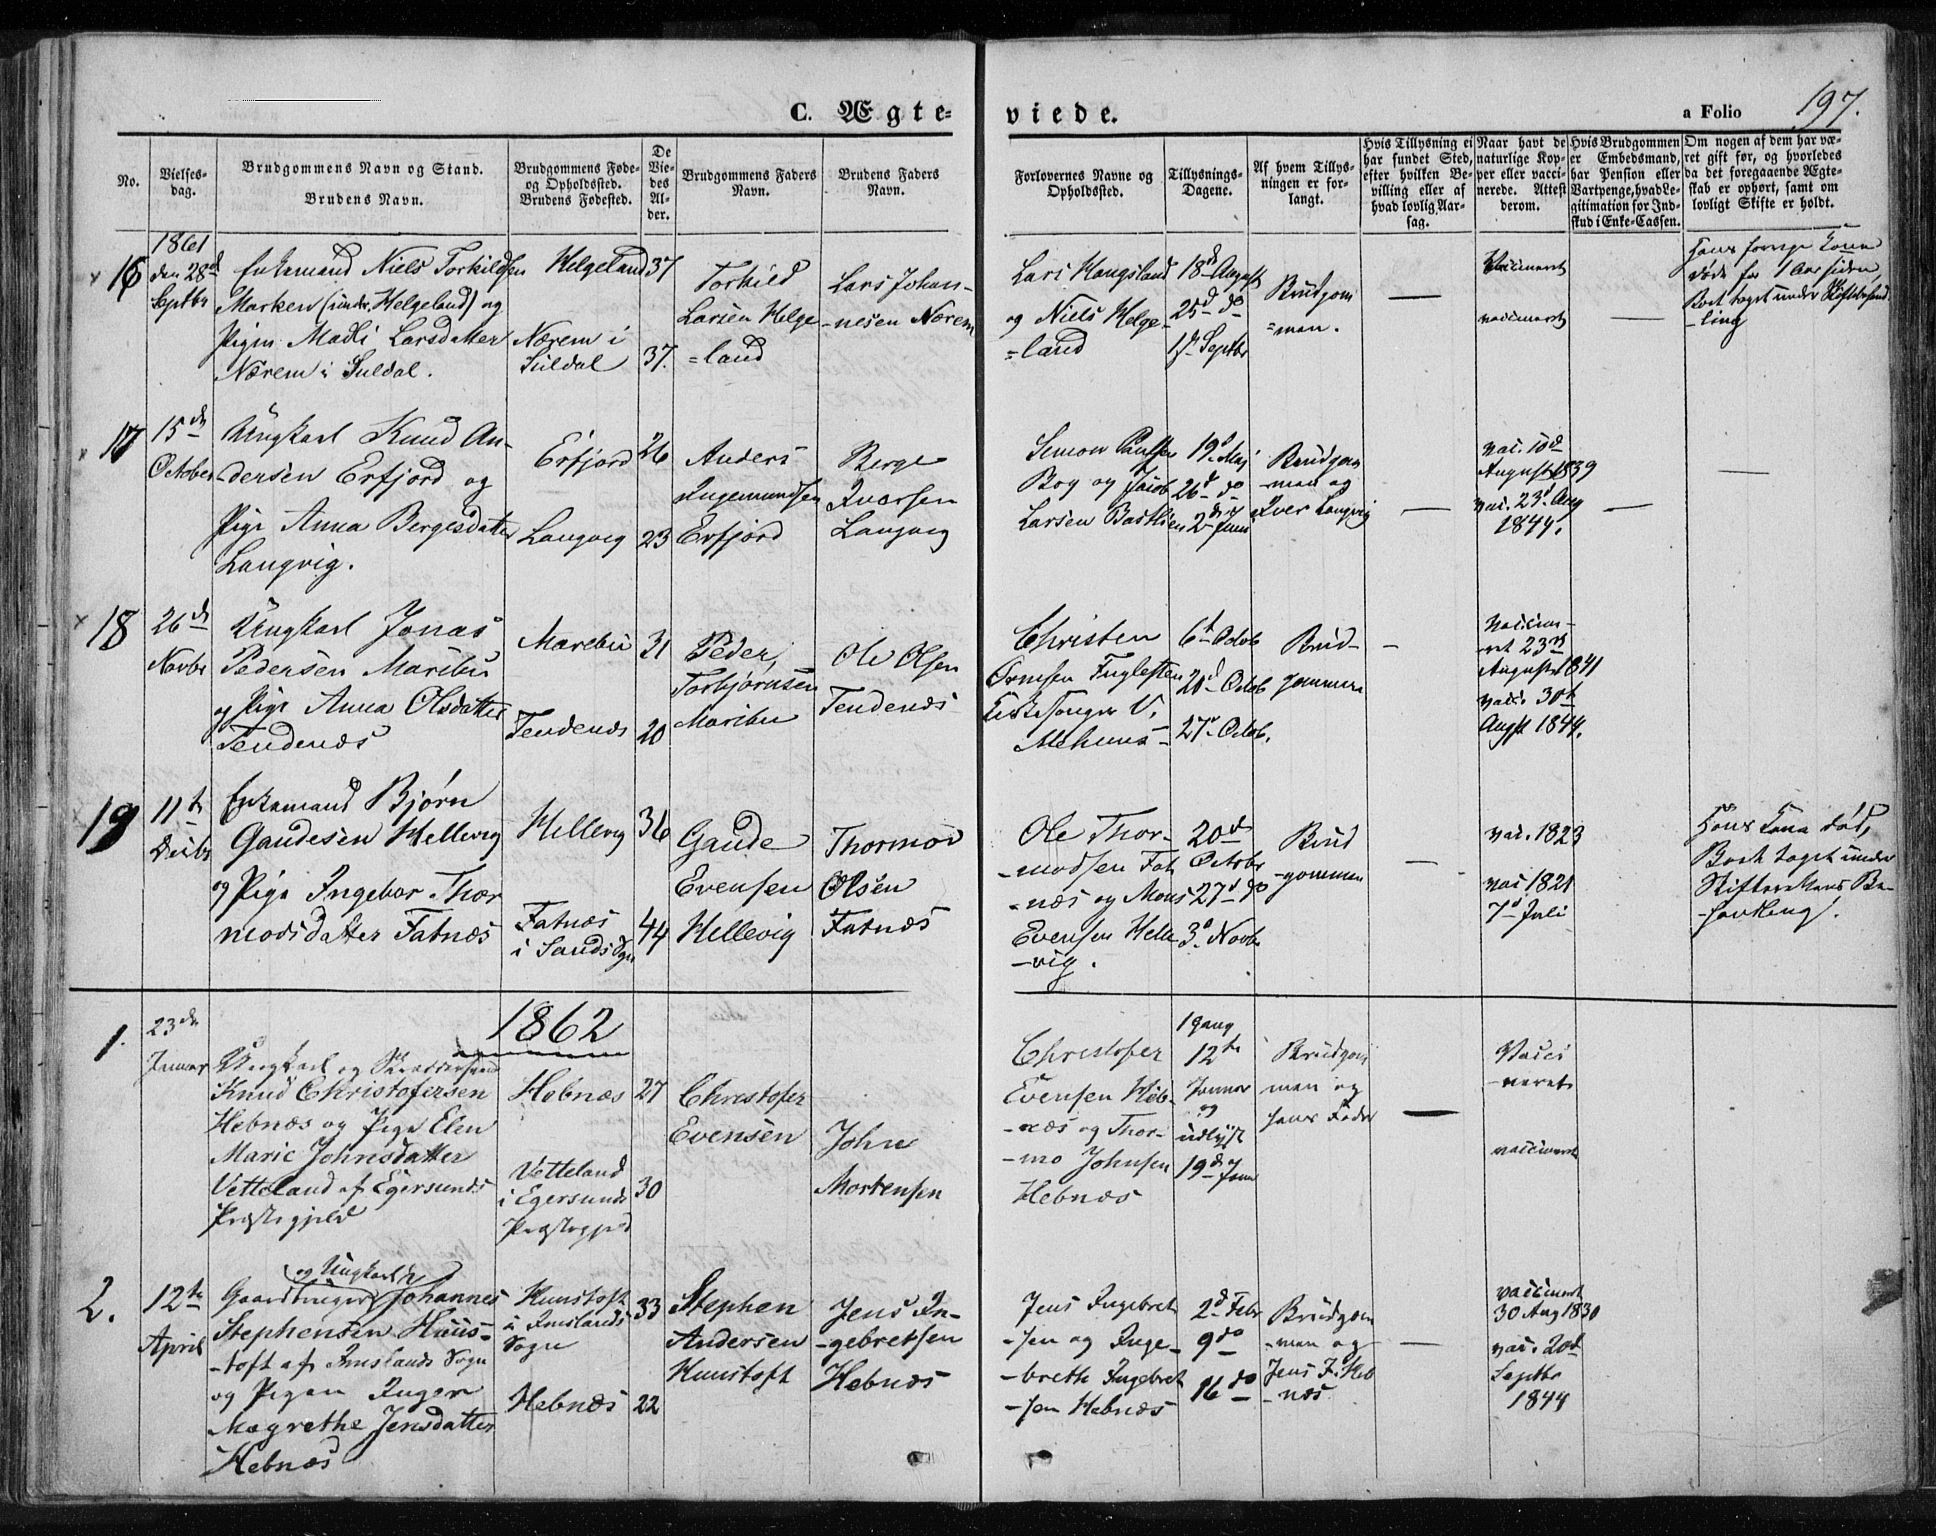 C. Ægte-
viede.
a Folio 197.
No.
Vielses-
dag.
Brudgommens Navn og Stand.
Brudens Navn.
Brudgommens Føde-
og Opholdssted.
Brudens Fødested.
De
Vie-
des
Al-
der.
Brudgommens Faders
Navn.
Brudens Faders
Navn.
Forlovernes Navne og
Opholdssted.
Tillysnings-
Dagene.
Af hvem Tillys-
ningen er for-
langt.
Hvis Tillysning ei
har fundet Sted,
efter hvilken Be-
villing eller af
hvad lovlig Aar-
sag.
Naar havt de
naturlige Kop-
per eller vacci-
nerede. Attest
derom.
Hvis Brudgommen
er Embedsmand,
har Pension eller
Vartpenge, hvad Le-
gitimation for Ind-
skud i Enke-Cassen.
Om nogen af dem har væ-
ret gift før, og hvorledes
da det foregaaende Ægte-
skab er ophørt, samt om
lovligt Skifte er holdt.
16
1861
den 28de
Septbr
Enkemand Niels Torkildsen
Marken (under Helgeland) og
Pigen Madli Larsdatter
Nærem i Suldal.
Helgeland
Nærem i
Suldal
37
37.
Torkild
Larsen Helge
=land
Lars Johan-
-nesen Nærem
Lars Haugsland
og Niels Helge-
=land
18de August
25de do
1ste Septbr
Brudgom
=men.
—
Vaccineret
vaccineret
—
Hans forrige Kone
døde for 1 Aar siden,
Boet taget under Skiftebehand
-ling
17
15de
October
Ungkarl Knud An-
-dersen Erfjord og
Pige Anna Bergesdatter
Langvig.
Erfjord
Langvig
26
23
Anders
Ingemundsen
Erfjord
Berge
Ivarsen
Langvig
Simon Paulsen
Bog og Jacob
Larsen Bastlien
19de Maj
26de do
2den Juni
Brudgom
-men og
Iver Langvig
—
vac. 10de
August 1839
vac. 23de Aug
1844.
—
—
18
26de
Novbr
Ungkarl Jonas
Pedersen Maribu
og Pige Anna Olsdatter
Tendenæs
Marebu
Tendenæs
31
20
Peder
Torbjørnsen
Maribu
Ole Olsen
Tendenæs
Christen
Ormsen Fuglesten
Kirkesanger V.
6te Octob
20de Octob
27de Octob.
Brud-
gommen
-
Vaccine-
ret 23de
August 1841
vac. 30te
Augst 1844.
19
11te
Decbr
Enkemand Bjørn
Gaudesen Hellevig
og Pige Ingebor Thor
modsdatter Fatnæs
Hellevig
Fatnæs
i Sands Sogn
36
44
Gaude
Evensen
Hellevig
Thormod
Olsen
Fatnæs
Ole Thor-
-modsen Fat
-næs og Mons
Evensen Helle
-vig.
20de
Octobr
27de do
3de Novbr
Brud
-gommen
—
vac. 1823
vac 1821
7de Juli
Hans Kone død,
Boet taget under
Skifterettens Be-
-handling.
1862
1.
23de
Januar
Ungkarl og Skræddersvend
Knud Christofersen
Hebnæs og Pige Elen
Marie Johnsdatter
Vetteland af Egersunds
Præstegjeld
Hebnæs
Vetteland
i Egersunds
Præstegjeld
27
30
Christofer
Evensen
John
Mortensen
Christofer
Evensen Heb-
-næs og Thor-
-mo Johnsen
Hebnæs
1 gang
12te
Januar
og
udlyst
19de Janr
Brudgom
men og
hans Fader
—
Vacci
-neret
vaccineret
2.
12te
April
og Ungkarl
Gaardbruger Johannes
Stephensen Huus-
-toft af Imslands Sogn
og Pigen Inger
Magrethe Jensdatter
Hebnæs
Huustoft
i Imslands
Sogn
Hebnæs
33
22
Stephen
Andersen
Huustoft
Jens In-
-gebretsen
Hebnæs
Jens Ingebret
-sen og Inge-
-breth Ingebret
-sen Hebnæs
2de Febr
9de
16de do
Brudgom
-men og
Jens I. Heb
-næs.
—
vaccineret
30 Aug 1830
vac. 20de
Septbr
1844